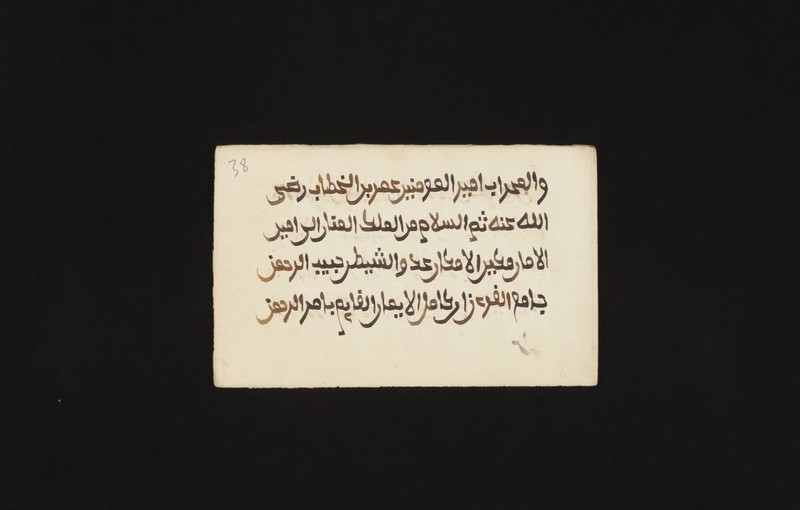 38
والمحراب امير المومنين عمر بن الخطاب رضي
الله عنه ثم السلام من الملك المنان الى امير
الامان مكين الامكان عدو الشيطن حبيب الرحمن
جامع القرءان كامل الايمان القايم بامر الرحمن